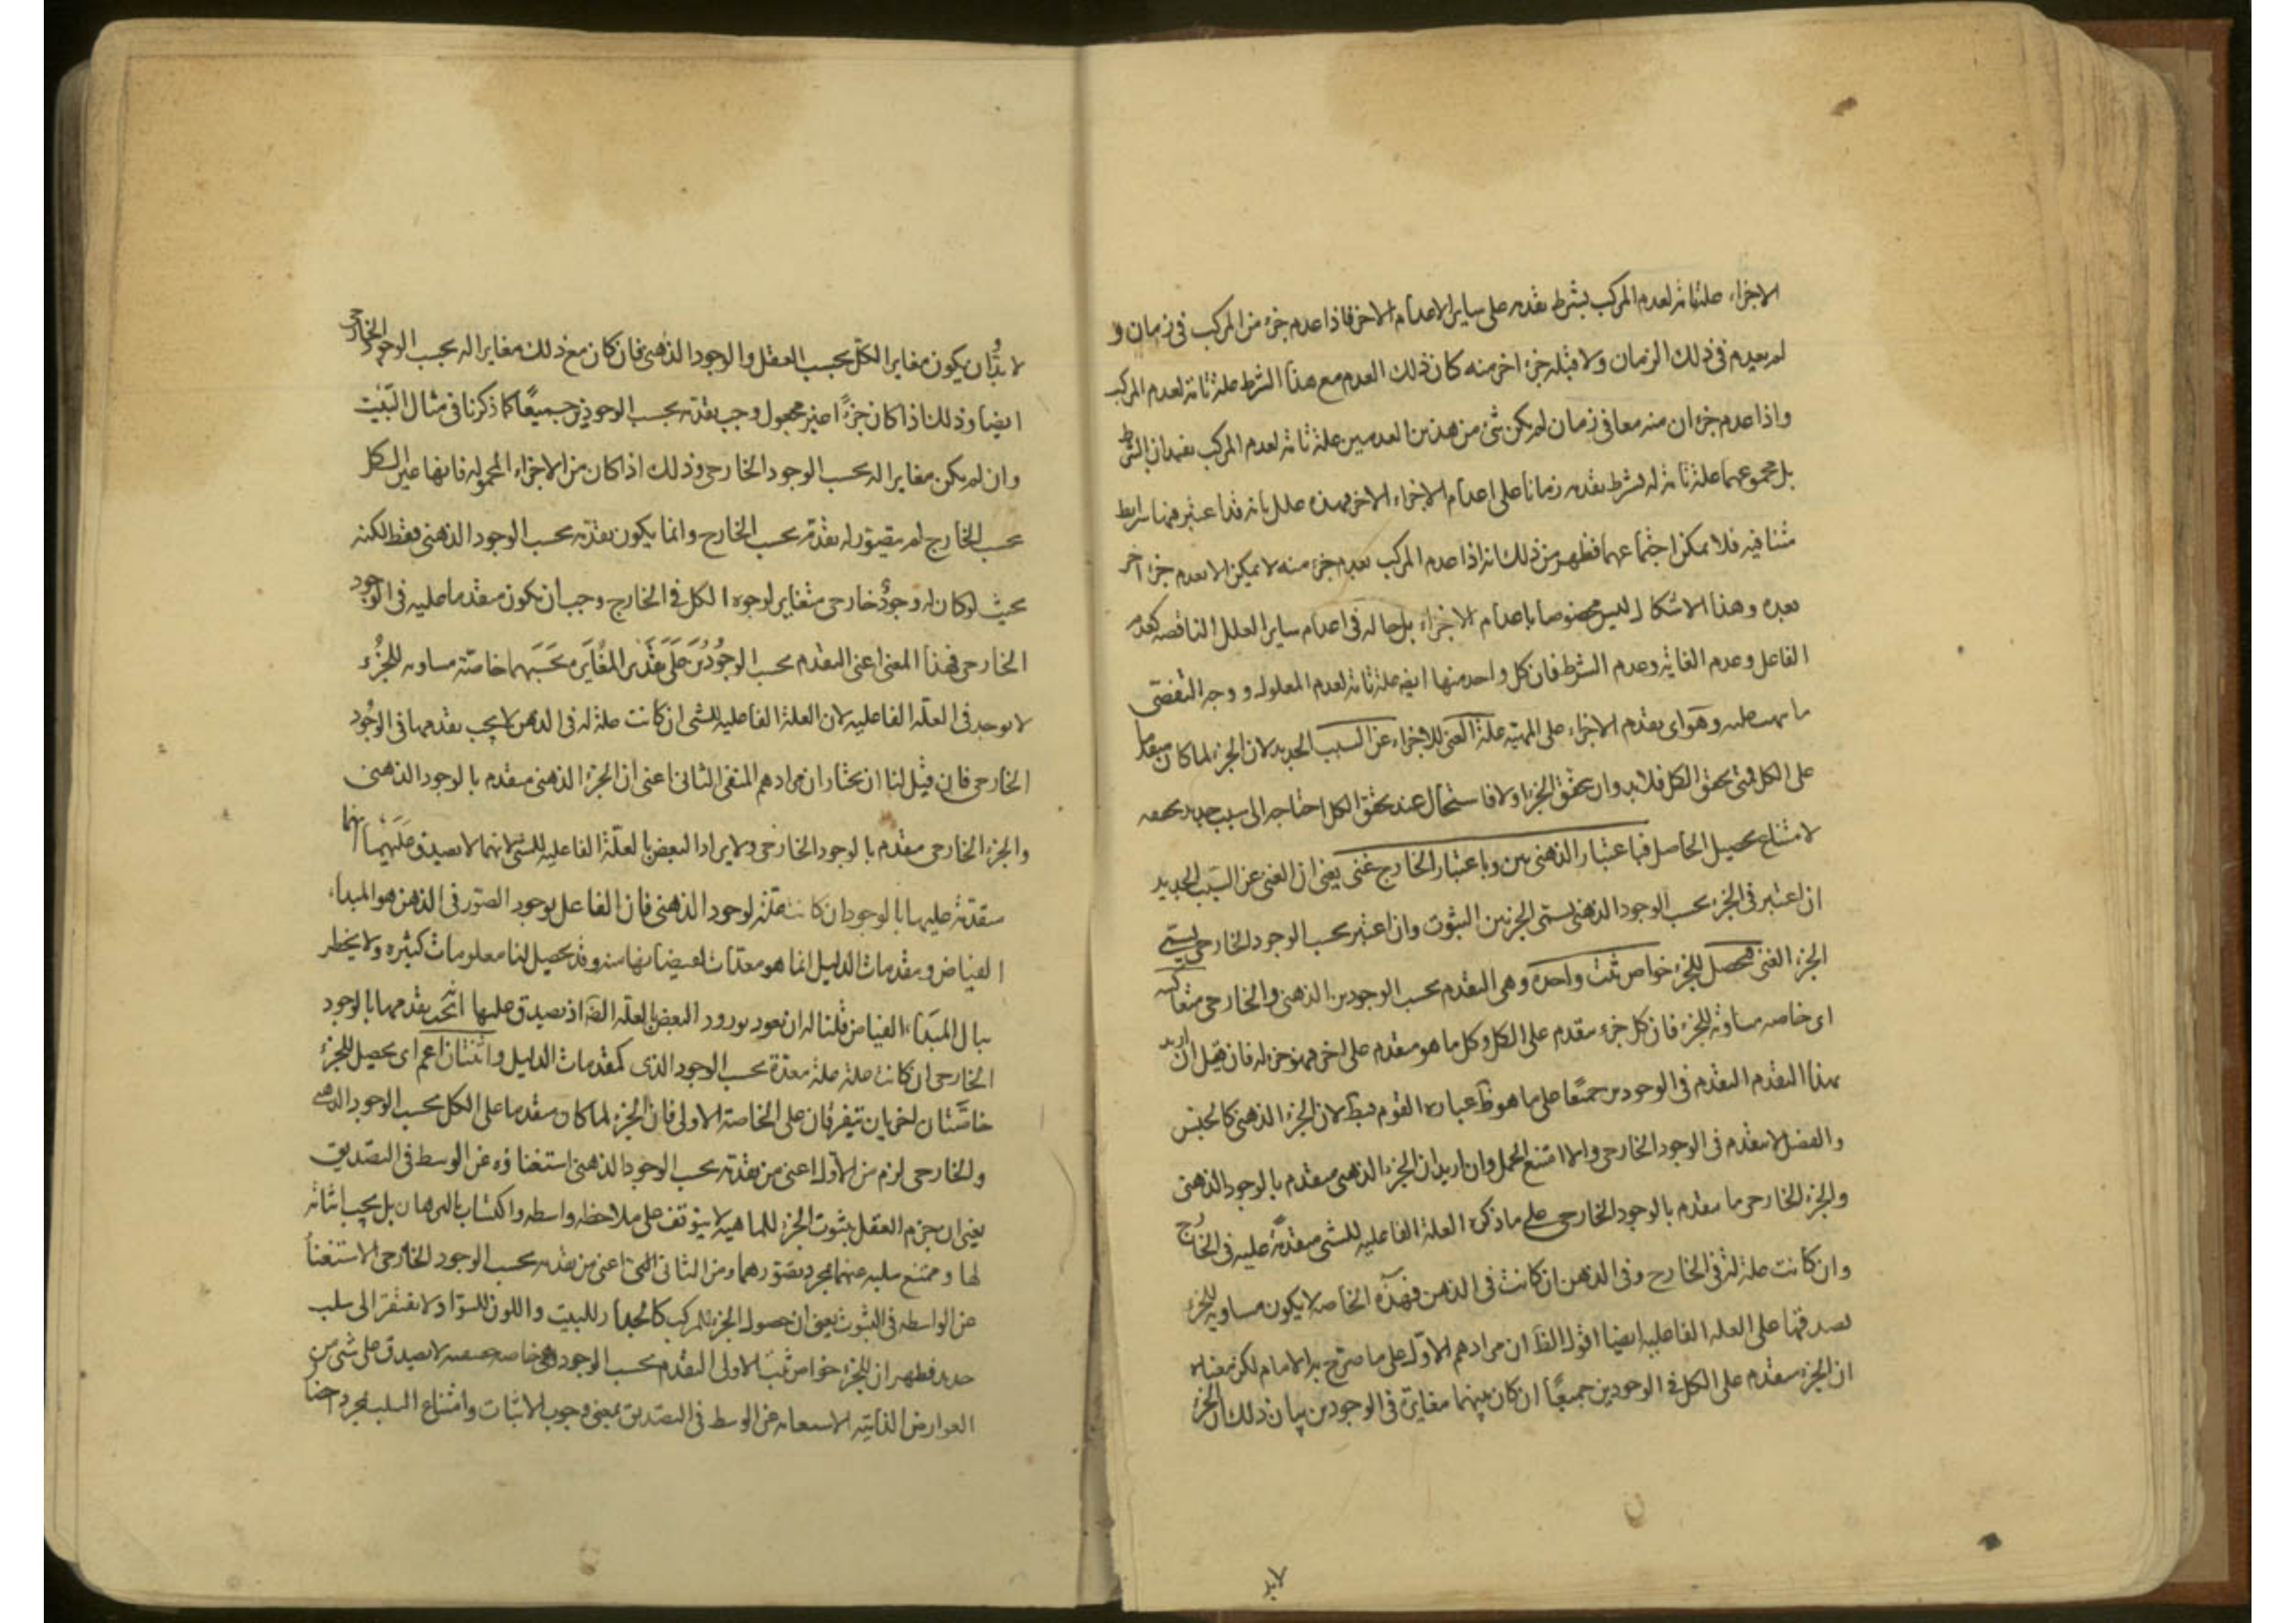 الاجزاء علة تامة لعدم المركب بشرط تقدمه على ساير الاعدام الاخر فاذا عدم جزء من المركب فى زمان و
لم يعدم فى ذلك الزمان ولا قبله جزء اخر منه كان ذلك العدم مع هذا الشرط علة تامة لعدم المركب
واذا عدم جزءان منه معا فى زمان لم يكن شئ من هذين العدمين علة تامة لعدم المركب بفقدان الشرط
بل مجموعهما علة تامة له بشرط تقدمه زمانا على اعدام الاجزاء الاخر فهذه علل تامة قد اعتبر فيها شرايط
متنافية فلا يمكن اجتماعها فظهر من ذلك انه اذا عدم المركب بعدم جزء منه لا يمكن الا بعدم جزء آخر
بعده وهذا الاشكال ليس مخصوصا باعدام الاجزاء بل حاله فى اعدام ساير العلل الناقصة كعدم
الفاعل وعدم الغاية وعدم الشرط فان كل واحد منها ايضا علة تامة لعدم المعلول و وجه التفصى
ما نبهت عليه وهو اى تقدم الاجزاء على المهية علة الغنى للاجزاء عن السبب الجديد لان الجزء لما كان متقدما
على الكل فمتى تحقق الكل فلابد وان تحقق الجزء اولا فاستحال عند تحقق الكل احتاجه الى سبب جديد تحققه
لامتناع تحصيل الحاصل فباعتبار الذهنى بين وباعتبار الخارج غنى يعنى ان الغنى عن السبب الجديد
ان اعتبر فى الجزء بحسب الوجود الذهنى يسمى الجزء بين الثبوت وان اعتبر بحسب الوجود الخارجى يسمى
الجزء الغنى فحصل للجزء خواص ثلث واحدة وهى التقدم بحسب الوجودين الذهنى والخارجى متعاكسة
اى خاصة مساوية للجزء فان كل جزء متقدم على الكل وكل ما هو متقدم على اخر فهو جزء له فان قيل ان اريد
بهذا التقدم التقدم فى الوجودين جميعا على ما هو ظ عبارة القوم فبط لان الجزء الذهنى كالجنس
والفصل لا يتقدم فى الوجود الخارجى والا امتنع الحمل وان اريد ان الجزء الذهنى متقدم بالوجود الذهنى
والجزء الخارجى ما يتقدم بالوجود الخارجى على ما ذكره العلة الفاعلية للشئ متقدمة عليه فى الخارج
وان كانت علة له فى الخارج وفى الذهن ان كانت فى الذهن فهذه الخاصة لا يكون مساوية للجزء
لصدقها على العلة الفاعلية ايضا اقول الظ ان مرادهم الاول على ما صرح به الامام لكن معناه
ان الجزء متقدم على الكل فى الوجودين جميعا ان كان بينهما مغايرة فى الوجودين بيان ذلك ان الجزء
لابد
لا بد وان يكون مغايرا للكل بحسب العقل والوجود الذهنى فان كان مع ذلك مغايرا له بحسب الوجود الخارجى
ايضا وذلك اذا كان جزءا غير محمول وجب تقدمه بحسب الوجودين جميعا كما ذكرنا فى مثال البيت
وان لم يكن مغايرا له بحسب الوجود الخارجى وذلك اذا كان من الاجزاء المحمولة فانها عين الكل
بحسب الخارج لم يتصور له تقدمه بحسب الخارج وانما يكون تقدمه بحسب الوجود الذهنى فقط لكنه
بحيث لو كان له وجود خارجى متغاير لوجود الكل فى الخارج وجب ان يكون متقدما عليه فى الوجود
الخارجى فهذا المعنى اعنى التقدم بحسب الوجودين على تقدير المغايرة بحسبهما خاصة مساوية للجزء
لا توجد فى العلة الفاعلية لان العلة الفاعلية للشئ ان كانت علة له فى الذهن لا يجب تقدمها فى الوجود
الخارجى فان قيل لنا ان نختار ان مرادهم المنفى الثانى اعنى ان الجزء الذهنى متقدم بالوجود الذهنى
والجزء الخارجى متقدم بالوجود الخارجى ولا يراد النقض بالعلة الفاعلية للشئ لانها لا تصدق عليها انها
متقدمة عليها بالوجود ان كانت علة لوجود الذهنى فان الفاعل لوجود الصور فى الذهن هو المبداء
الفياض ومقدمات الدليل انما هو معدات لفيضانها منه وقد يحصل لنا معلومات كثيرة ولا يخطر
ببال المبداء الفياض قلنا له ان نعود بورود النقض بالعلة اذ تصدق عليها تقدمها بالوجود
الخارجى ان كانت علة علة معدة بحسب الوجود الذى كمقدمات الدليل واثنتان اعم اى يحصل للجزء
خاصتان اخريان تتفرقان على الخاصة الاولى فان الجزء لما كان متقدما على الكل بحسب الوجود الذهنى
والخارجى لزم من الاول اعنى من تقدمه بحسب الوجود الذهنى استغناؤه عن الوسط فى التصديق
يعنى ان جزم العقل بثبوت الجزء للماهية لا يتوقف على ملاحظة واسطة واكتساب بالبرهان بل يجب اثباته
لها ويمتنع سلبه عنها بمجرد تصورهما ومن الثانى اعنى من تقدمه بحسب الوجود الخارجى الاستغناء
عن الواسطة فى الثبوت يعنى ان حصول الجزء للمركب كالجدار للبيت واللون للسواد لا يفتقر الى سلب
جديد فظهر ان للجزء خواص ثلث الاولى التقدم بحسب الوجود وهى خاصة حقيقية لا تصدق على شئ من
العوارض الذاتية الاستغناء عن الوسط فى التصديق بمعنى وجوب الاثبات وامتناع السلب بمجرد